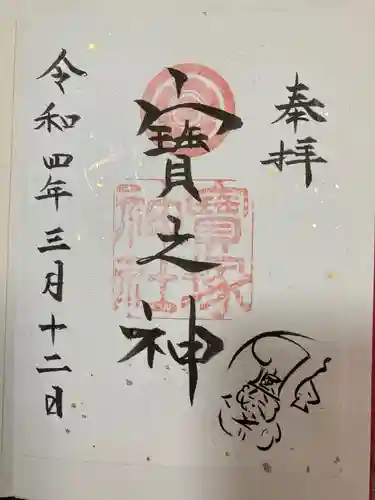 奉拝
寳之神
寳塚神社
令和四年三月十二日